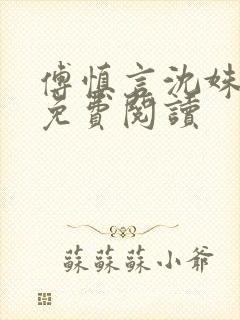 傅慎言沈姝
免費閱讀
蘇蘇蘇小爺